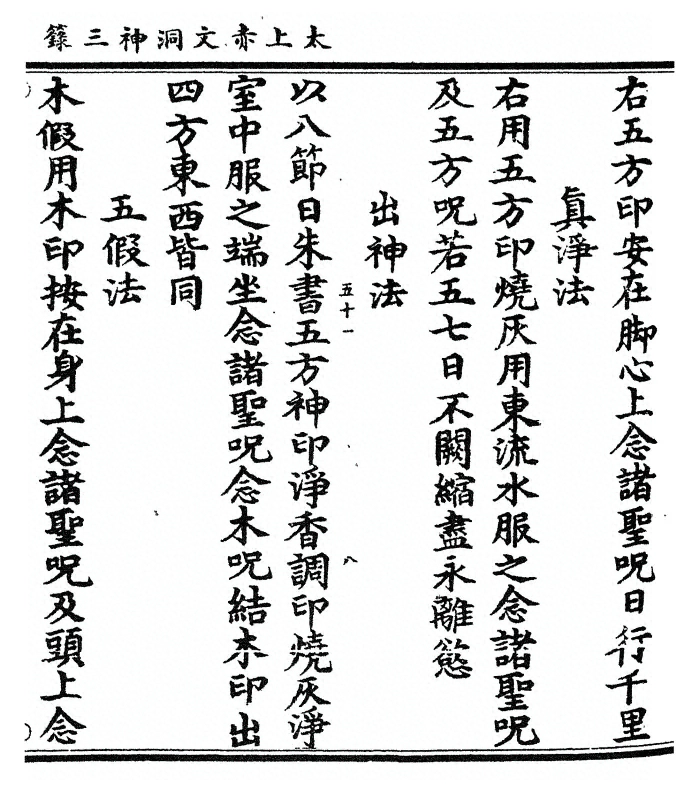 太上赤文洞神三籙
右五方印安在脚心上念諸聖呪日行千里
眞淨法
右用五方印燒灰用東流水服之念諸聖呪
及五方呪若五七日不闕縮盡永離慾
出神法
五十一
八
以八節日朱書五方神印淨香調印燒灰淨
室中服之端坐念諸聖呪念木呪結木印出
四方東西皆同
五假法
木假用木印按在身上念諸聖呪及頭上念